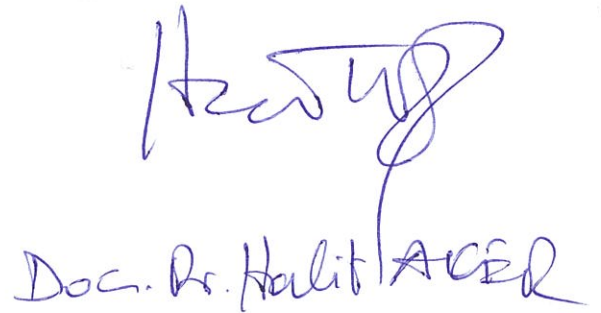 Doç. Dr. Halit AKER